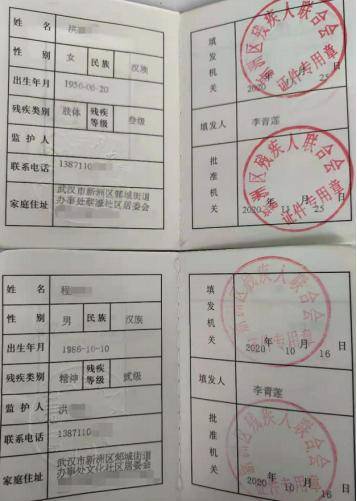 姓 名 洪
性 别 女 民族 汉族
出生年月 1956-06-20
残疾类别 肢体 残疾等级 叁级
监 护 人
联系电话 1387110
家庭住址 武汉市新洲区邾城街道
办事处 社区居委会
填发机关
新洲区残疾人联合会
证件专用章
2020 年 11 月 25 日
填发人 李青莲
批准机关
新洲区残疾人联合会
证件专用章
2020 年 11 月 25 日
姓 名 程
性 别 男 民族 汉族
出生年月 1986-10-10
残疾类别 精神 残疾等级 贰级
监 护 人 洪
联系电话 1387110
家庭住址 武汉市新洲区邾城街道
办事处文化社区居委会
填发机关
新洲区残疾人联合会
证件专用章
2020 年 10 月 16 日
填发人 李青莲
批准机关
新洲区残疾人联合会
证件专用章
2020 年 10 月 16 日